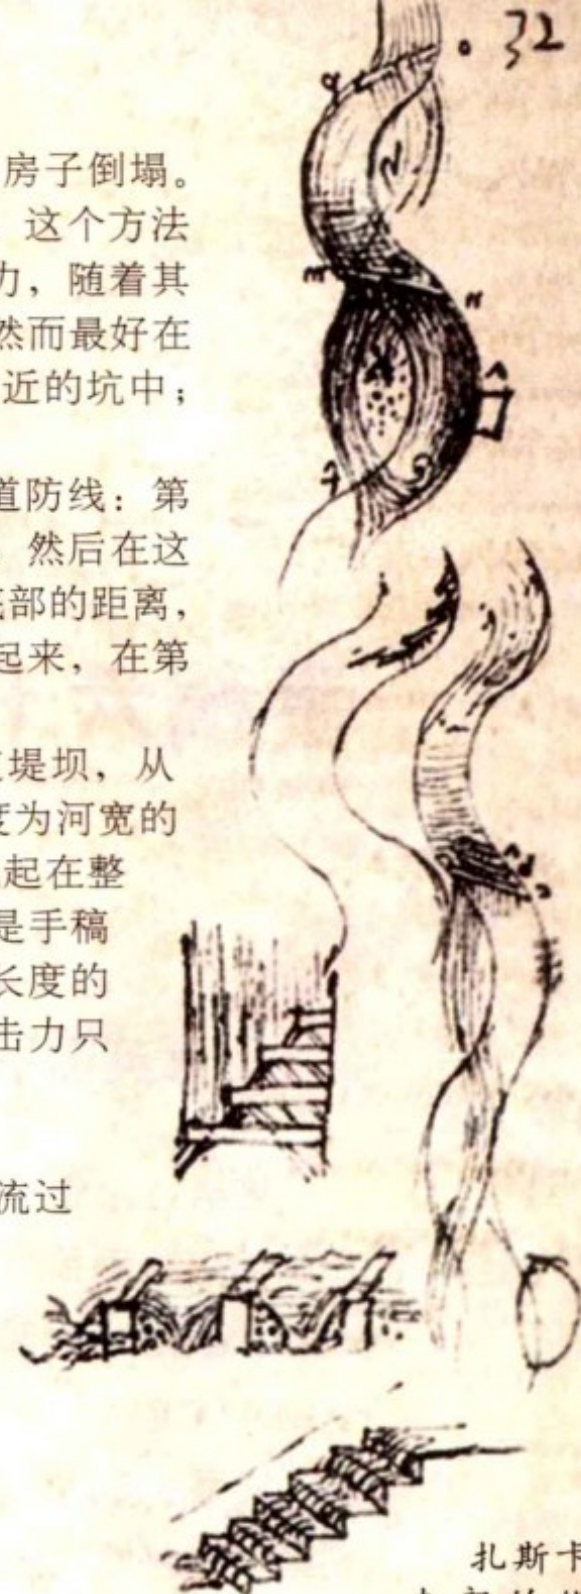 32
房子倒塌。
这个方法
力，随着其
然而最好在
近的坑中；
道防线：第
然后在这
底部的距离，
起来，在第
堤坝，从
度为河宽的
起在整
是手稿
长度的
击力只
流过
扎斯卡